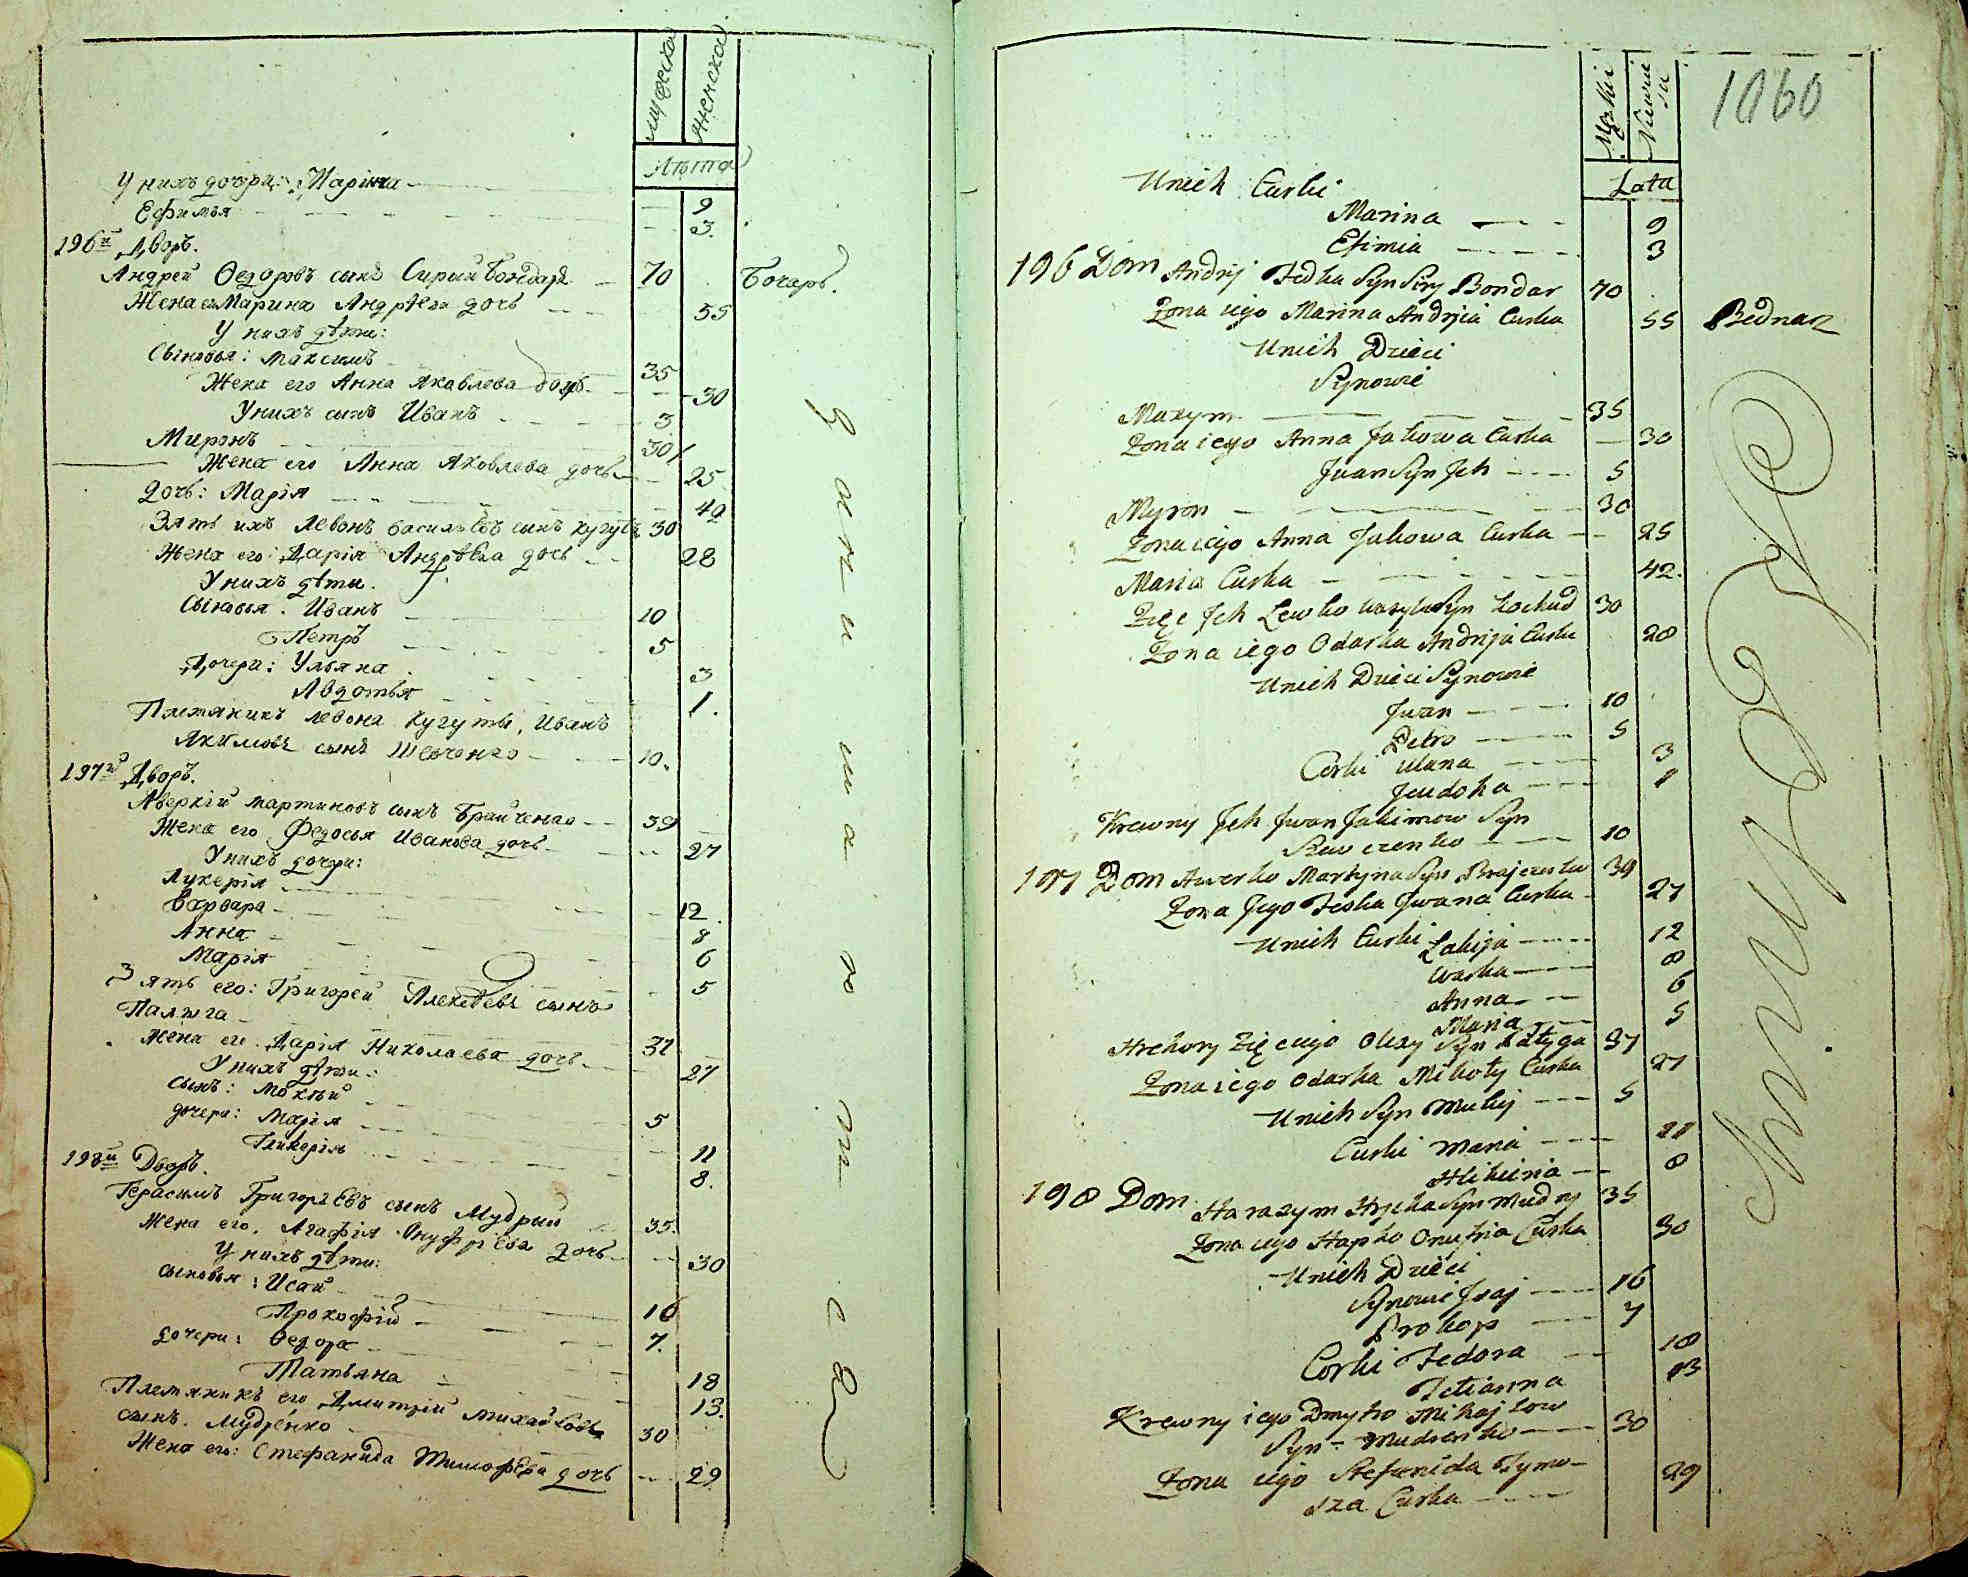 мужеска
женска
Лѣта
У нихъ дочери: Марина 9
Ефимья 3.
196й Дворъ.
Андрей Ѳедоровъ сынъ Сирый Бондарь 70 Бочаръ.
Жена ево Марина Андрѣева дочь 55
У нихъ дѣти:
Сыновья: Максимъ 35
Жена его Анна Яковлева дочь 30
У нихъ сынъ Иванъ 3
Миронъ 30
Жена его Анна Яковлева дочь 25
Дочь: Марія 42
Зять ихъ Левонъ Васильевъ сынъ Кугутъ 30
Жена его: Дарія Андрѣева дочь 28
У нихъ дѣти.
Сыновья: Иванъ 10
Петръ 5
Дочери: Ульяна 3
Авдотья 1.
Племяникъ Левона Кугуты, Иванъ
Якимовъ сынъ Шевченко 10.
197й Дворъ.
Аверкій Мартиновъ сынъ Брайченко 39
Жена его Федосья Иванова дочь 27
У нихъ дочери:
Лукерія 12
Варвара 8
Анна 6
Марія 5
Зять его: Григорей Алексѣевъ сынъ
Палыга 37
Жена его Дарія Николаева дочь 27
У нихъ дѣти:
Сынъ: Мокѣй 5
дочери: Марія 11
Гликерія 8.
198й Дворъ.
Герасимъ Григорьевъ сынъ Мудрый 35.
Жена его, Агафія Онуфріева дочь 30
У нихъ дѣти:
Сыновья: Исай 16
Прокофій 7.
дочери: Ѳедора 18
Татьяна 13.
Племяникъ его Дмитрій Михайловъ
сынъ Мудренко 30
Жена его: Стефанида Тимофѣева дочь 29
1060
Męzki
Niewiesci
Lata
Unich Curki
Marina 9
Efimia 3
196 Dom Andrij Fedka Syn Siry Bondar 70
Żona iego Marina Andrija Curka 55 Bednarz
Unich Dzieci
Synowie
Maxym 35
Żona iego Anna Jakowa Curka 30
Jwan Syn Jch 5
Myron 30
Żona iego Anna Jakowa Curka 25
Maria Curka 42.
Zięc Jch Lewko Wasyla Syn 30
Żona iego Odarka Andrija Curka 28
Unich Dzieci Synowie
Jwan 10
Petro 5
Corki Ulana 3
Jeudoha 1
Krewny Jch Jwan Jakimow Syn
Szewczenko 10
197 Dom Awerko Martyna Syn Brajczenko 39
Żona Jego Feska Jwana Curka 27
Unich Curki Lukija 12
Warka 8
Anna 6
Maria 5
Hrehory Zięc iego Olexy Syn Pałyga 37
Żona iego Odarka Mikoły Curka 27
Unich Syn Mukij 5
Curki Maria 11
Hlikiria 8
198 Dom Harasym Hrycka Syn Mudry 35
Żona iego Hapka Onufria Curka 30
Unich Dzieci
Synowie Jsaj 16
Prokop 7
Corki Fedora 18
Tetianna 13
Krewny iego Dmytro Mihajłow
Syn Mudrenko 30
Żona iego Stefanida Tymo-
sza Curka 29